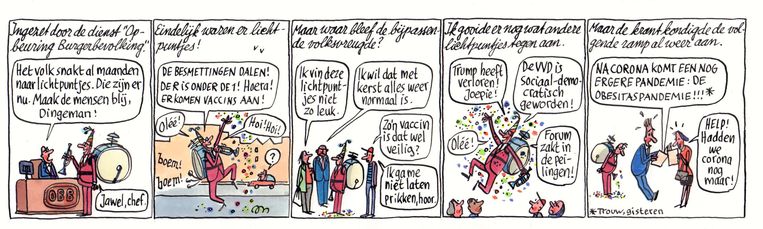 Ingezet door de dienst "Op-
beuring Burgerbevolking".
Het volk snakt al maanden
naar lichtpuntjes. Die zijn er
nu. Maak de mensen blij,
Dingeman!
OBB
Jawel, chef.
Eindelijk waren er licht-
puntjes!
DE BESMETTINGEN DALEN!
DE R IS ONDER DE 1! Hoera!
ER KOMEN VACCINS AAN!
Oléé!
Hoi! Hoi!
boem!
boem!
?
Maar waar bleef de bijpassen-
de volksvreugde?
Ik vin deze
lichtpunt-
jes niet
zo leuk.
Ik wil dat met
kerst alles weer
normaal is.
Zo'n vaccin
is dat wel
veilig?
Ik ga me
niet laten
prikken, hoor.
Ik gooide er nog wat andere
lichtpuntjes tegen aan.
Trump heeft
verloren!
Joepie!
De VVD is
sociaal-demo-
cratisch
geworden!
Oléé!
Forum
zakt in
de pei-
lingen!
Maar de krant kondigde de vol-
gende ramp al weer aan.
NA CORONA KOMT EEN NOG
ERGERE PANDEMIE: DE
OBESITASPANDEMIE!!!*
HELP!
Hadden
we
corona
nog
maar!
*Trouw, gisteren